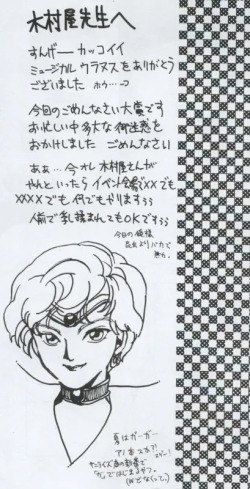 木村屋先生へ
すんげーーカッコイイ
ミュージカルウラヌスをありがとう
ございました ホゥ…つ
今回のごめんなさい大賞です
お忙しい中多大な御迷惑を
おかけしました ごめんなさい
あぁ…今オレ木村屋さんが
やれといったらイベント会場でXXでも
XXXXでも何でもやりますぅぅ
人前で乳揉まれてもOKですぅぅ
今日の俺様
昆虫よりバカで
無力。
夏はガーガー